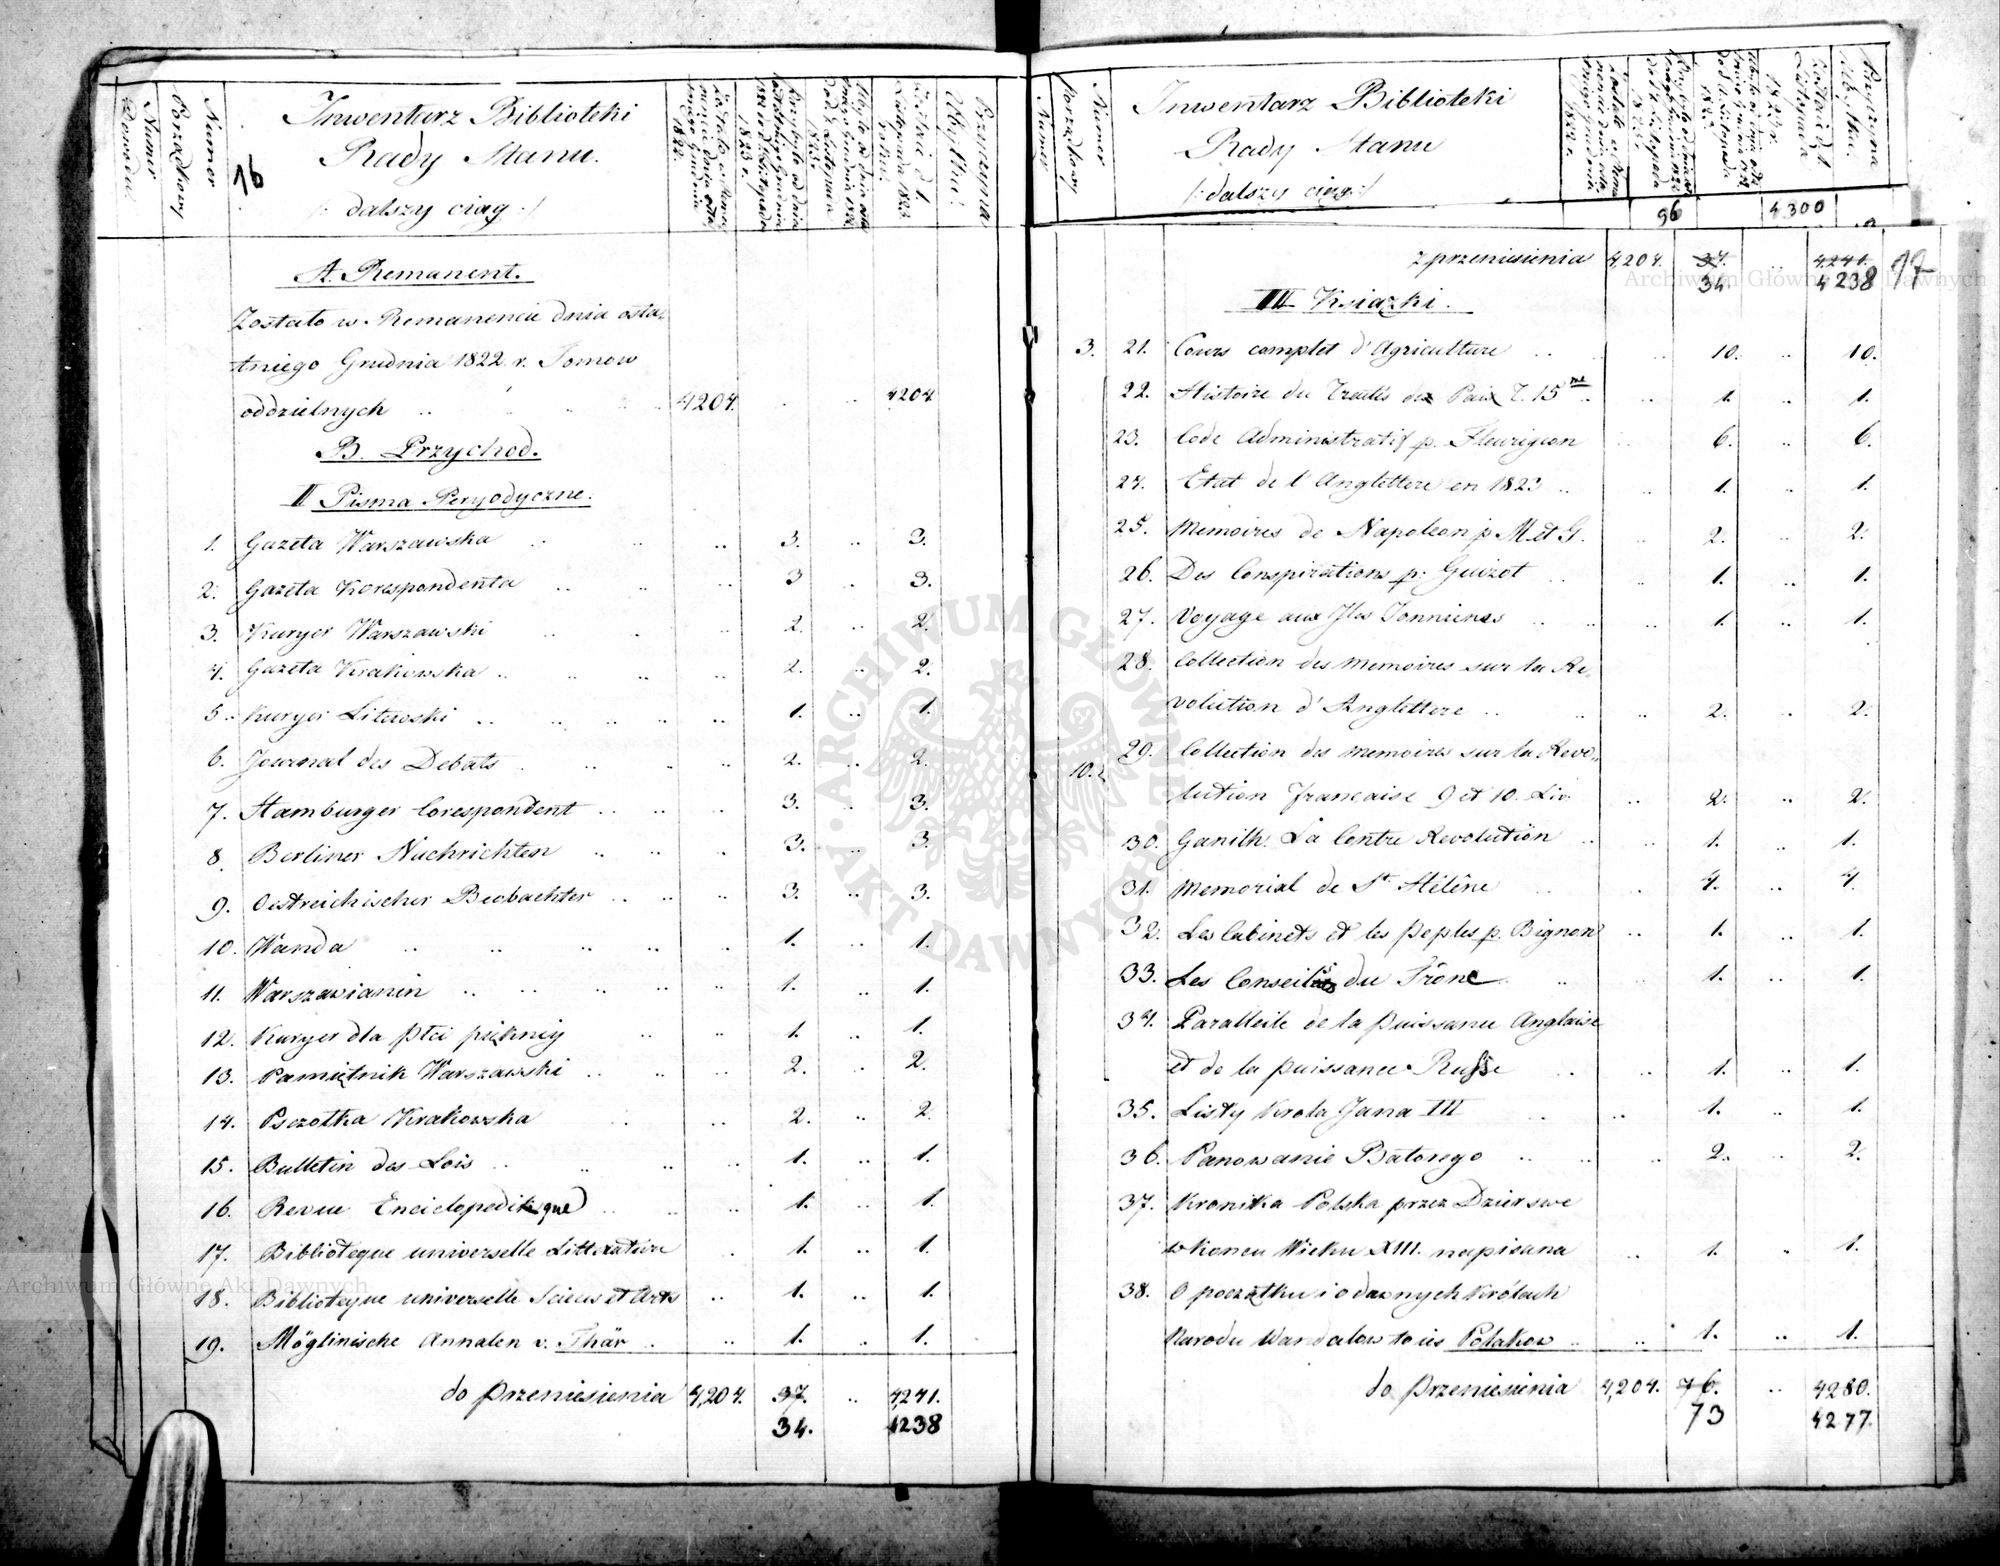 Numer
Dowodu
Numer
Porządkowy
16
Inwentarz Biblioteki
Rady Stanu.
/: dalszy ciąg :/
Przyczyna
Ubytku
A. Remanent.
Zostało w Remanencie dnia osta-
tniego Grudnia 1822 r. Tomow
oddzielnych .. 4204. .. 4204
B. Przychod.
II Pisma Peryodyczne.
1. Gazeta Warszawska .. 3. .. 3.
2. Gazeta Korespondenta .. 3 .. 3.
3. Kuryer Warszawski .. 2. .. 2.
4. Gazeta Krakowska .. 2. .. 2.
5. Kuryer Litewski .. 1. .. 1.
6. Journal des Debats .. 2. .. 2.
7. Hamburger Corespondent .. 3. .. 3.
8. Berliner Nachrichten .. 3. .. 3.
9. Oestreichischer Beobachter .. 3. .. 3.
10. Wanda .. 1. .. 1.
11. Warszawianin .. 1. .. 1.
12. Kuryer dla płci piękniy .. 1. .. 1.
13. Pamiętnik Warszawski .. 2. .. 2.
14. Pszczołka Krakowska .. 2. .. 2.
15. Bulletin des Lois .. 1. .. 1.
16. Revue Enciclopedique .. 1. .. 1.
17. Biblioteque universelle Litterature .. 1. .. 1.
18. Biblioteque universelle Sciences et Arts .. 1. .. 1.
19. Möglinische Annalen v. Thär .. 1. .. 1.
do przeniesienia 4,204. 37. .. 4,241.
34. 4238
Numer
Porządkowy
Numer
Inwentarz Biblioteki
Rady Stanu
/: dalszy ciąg :/
Przyczyna
Ubytku
96 4300
z przeniesienia 4,204. 37. .. 4,241. 17
34. 4238
III Książki.
3. 21. Cours complet d'Agriculture .. 10. .. 10.
22. Histoire du Traités de Paix T. 15me .. 1. .. 1.
23. Code Administratif p. Fleurigeon .. 6. .. 6.
24. Etat de l'Anglettere en 1823 .. 1. .. 1.
25. Memoires de Napoleon p M. et G. .. 2. .. 2.
26. Des Conspirations p. Guizot .. 1. .. 1.
27. Voyage aux Iles Ionnienes .. 1. .. 1.
28. Collection des memoires sur la Re-
volution d'Anglettere .. 2. .. 2.
29. Collection des memoires sur la Revo-
10. lution francaise 9 et 10. Liv. .. 2. .. 2.
30. Ganilh. La Contre Revolution .. 1. .. 1.
31. Memorial de St. Hélêne .. 4. .. 4.
32. Les Cabinets et les peoples p. Bignon .. 1. .. 1.
33. Les Conseils du Trône .. 1. .. 1.
34. Paralleile de la puissance Anglaise
et de la puissance Russe .. 1. .. 1.
35. Listy Krola Jana III .. 1. .. 1.
36. Panowanie Batorego .. 2. .. 2.
37. Kronika Polska przez Dzierswe
w koncu Wieku XIII. napisana .. 1. .. 1.
38. O początku i o dawnych Królach
Narodu Wandalow to ies Polakow .. 1. .. 1.
do przeniesienia 4,204. 76. .. 4280.
73 4277.
Archiwum Główne Akt Dawnych
Archiwum Główne Akt Dawnych
ARCHIWUM GŁÓWNE AKT DAWNYCH